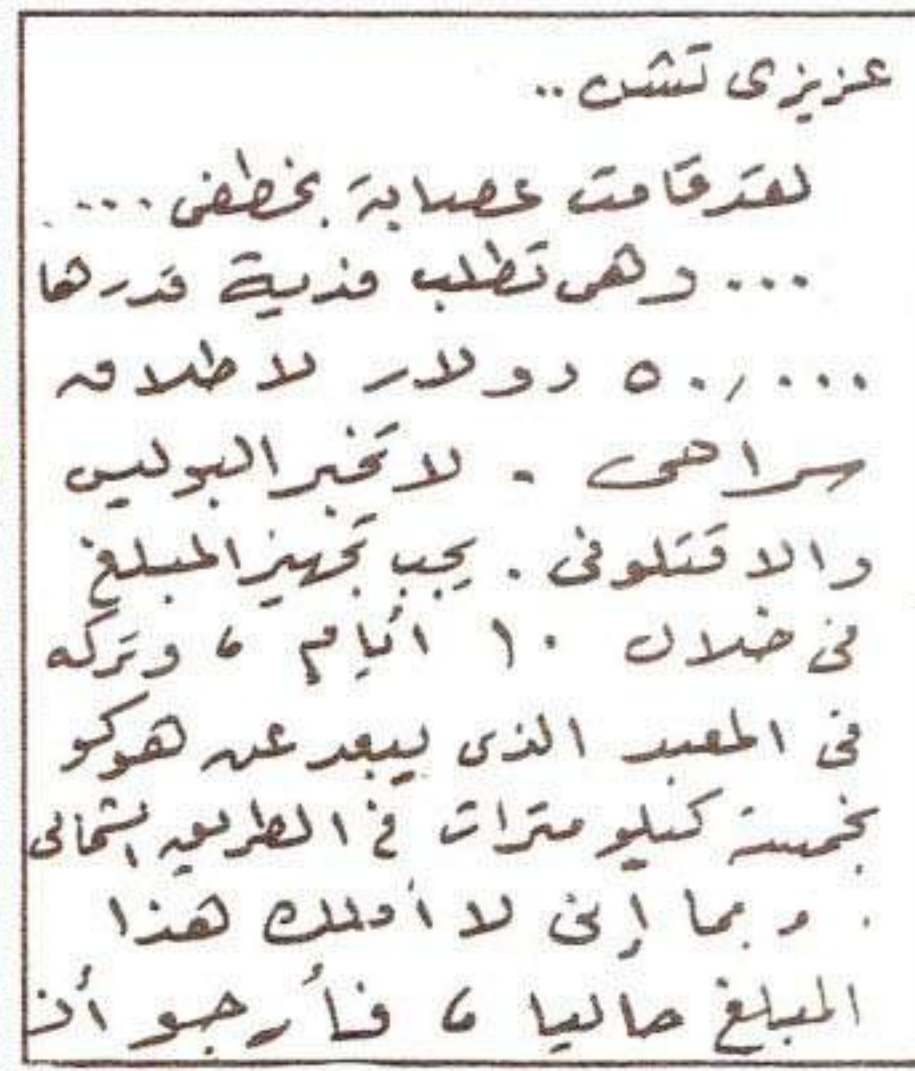 عزيزى تشن ..
لقد قامت عصابة بخطفى ....
... وهى تطلب فدية قدرها
٥٠,٠٠٠ دولار لاطلاق
سراحى . لا تخبر البوليس
والا قتلونى . يجب تجهيز المبلغ
فى خلال ١٠ أيام ، وتركه
فى المعبد الذى يبعد عن هوكو
بخمسة كيلو مترات فى الطريق الشمالى
. وبما إنى لا أملك هذا
المبلغ حاليا ، فأرجو أن